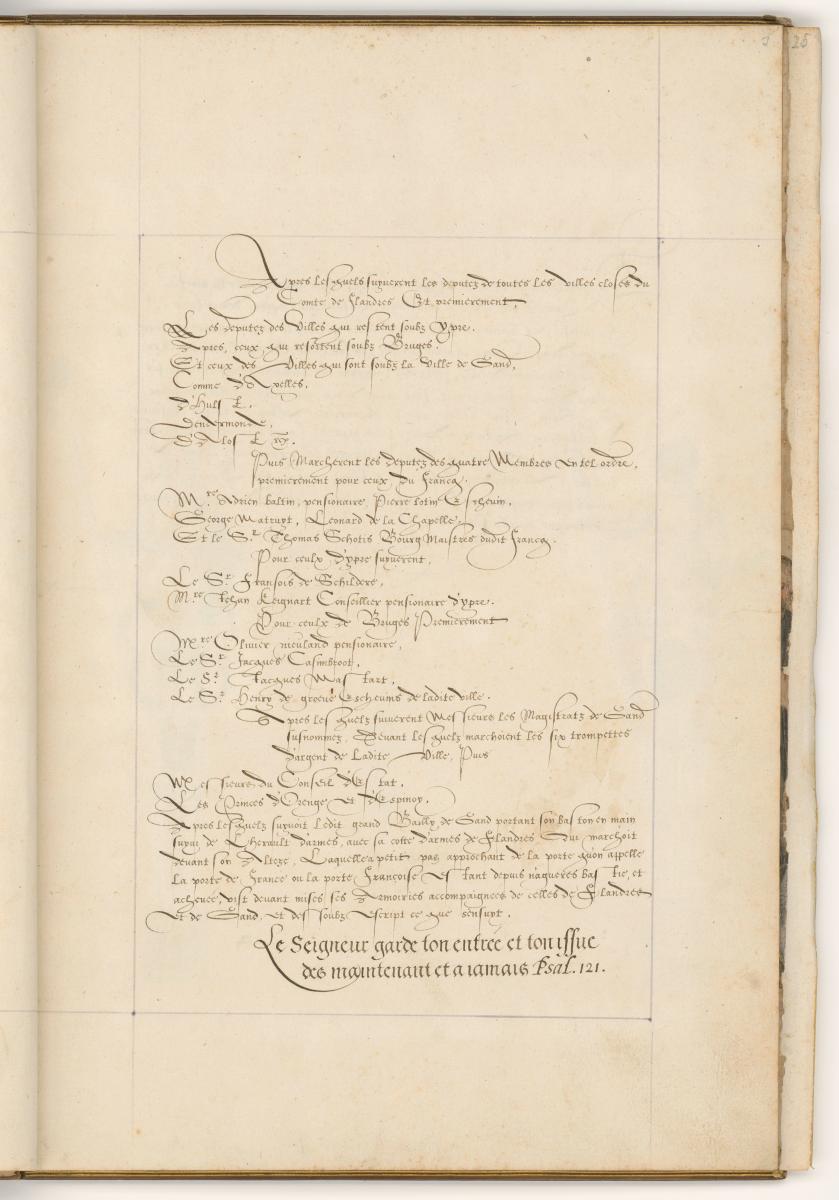 25
Apres lesquels suyverent les deputez de toutes les villes closes du
Comte de flandres Et premierement,
Les deputez des Villes qui restent soubz Ypre.
Apres, ceux qui resortent soubz Bruges.
Et ceux des Villes qui sont soubz la Ville de Gand,
Comme d'Axelles,
d'Hulst.
Dendermonde,
d'Alost
Puis Marcherent les deputez des quatre Membres en tel ordre,
premierement pour ceux du francq.
M.re Adrien baltin, pensionaire, Pierre lotin, Eschevin,
George Matruyt, Leonard de la Chapelle,
Et le S.r Thomas Schotis Bourg Maistres dudit francq.
Pour ceulx d'ypre suyverent,
Le S.r fransois de Schildere,
M.re Jehan Reignart Conseillier pensionaire d'ypre.
Pour ceulx de Bruges Premierement
M.re Olivier nieuland pensionaire,
Le S.r Jacques Casimbroot,
Le S.r Jacques Mastart,
Le S.r Henry de groeve Eschevins de ladite ville.
Apres lesquelz suiverent Messieurs les Magistratz de Gand
susnommez, Devant lesquelz marchoient les six trompettes
d'argent de Ladite Ville, Puis
Messieurs du Conseil d'Estat,
Les Princes d'Orenge et d'Espinoy,
Apres lesquelz suyvoit ledit grand Bailly de Gand portant son baston en main
suyvi de L'herault d'armes, avec sa cotte d'armes de flandres Qui marchoit
devant son Alteze, Laquelle a petit pas approchant de la porte qu'on appelle
La porte de france ou la porte françoise estant depuis naqueres bastie, et
achevée, vist devant mises ses Armoiries accompaignees de celles de flandres
et de Gand, et dessoubz escript ce que sensuyt.
Le Seigneur garde ton entrée et ton issue
des maintenant et a iamais Psal. 121.